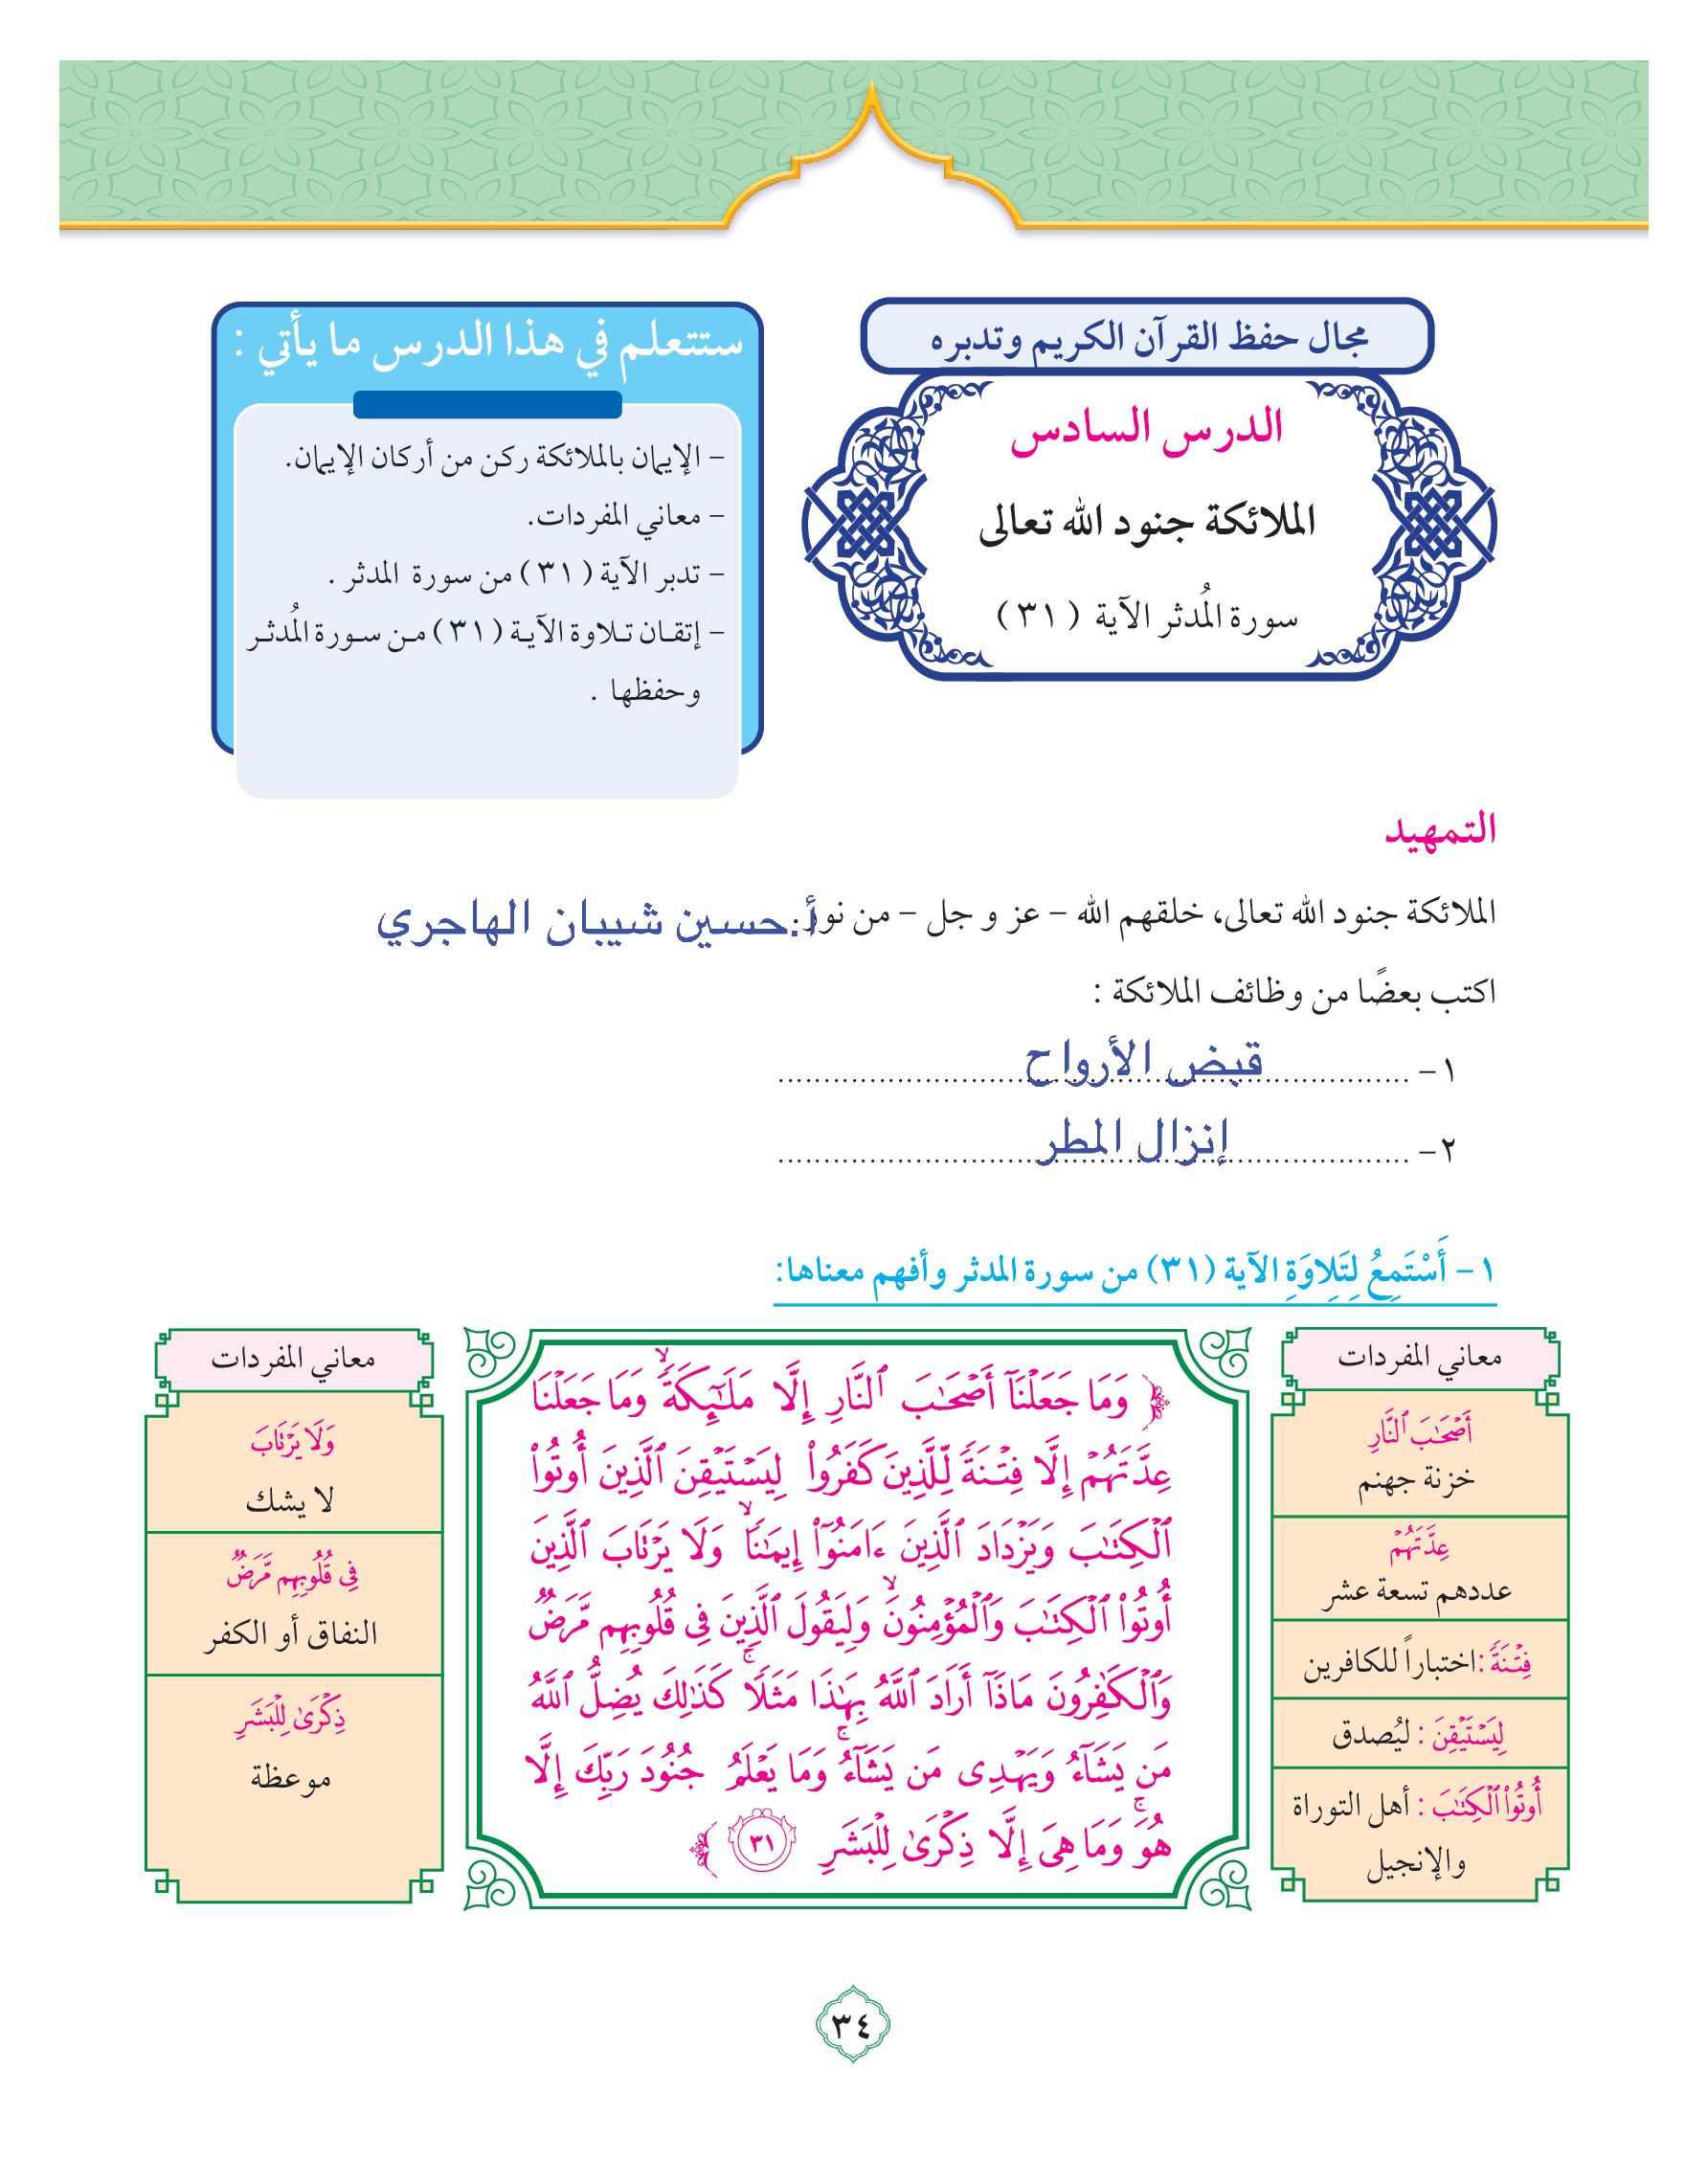 مجال حفظ القرآن الكريم وتدبره
الدرس السادس
الملائكة جنود الله تعالى
سورة المُدثر الآية (٣١)
ستتعلم في هذا الدرس ما يأتي :
– الإيمان بالملائكة ركن من أركان الإيمان.
– معاني المفردات.
– تدبر الآية (٣١) من سورة المدثر .
– إتقان تلاوة الآية (٣١) من سورة المُدثر
وحفظها .
التمهيد
الملائكة جنود الله تعالى، خلقهم الله – عز و جل – من نور.
أ.حسين شيبان الهاجري
اكتب بعضًا من وظائف الملائكة :
١– قبض الأرواح
٢– إنزال المطر
١– أَسْتَمِعُ لِتَلِاوَةِ الآية (٣١) من سورة المدثر وأفهم معناها:
معاني المفردات
أَصْحَٰبَ ٱلنَّارِ
خزنة جهنم
عِدَّتَهُمْ
عددهم تسعة عشر
فِتْنَةً :اختباراً للكافرين
لِيَسْتَيْقِنَ : ليُصدق
أُوتُوا۟ ٱلْكِتَٰبَ : أهل التوراة
والإنجيل
﴿ وَمَا جَعَلْنَآ أَصْحَٰبَ ٱلنَّارِ إِلَّا مَلَٰٓئِكَةً ۙ وَمَا جَعَلْنَا
عِدَّتَهُمْ إِلَّا فِتْنَةً لِّلَّذِينَ كَفَرُوا۟ لِيَسْتَيْقِنَ ٱلَّذِينَ أُوتُوا۟
ٱلْكِتَٰبَ وَيَزْدَادَ ٱلَّذِينَ ءَامَنُوٓا۟ إِيمَٰنًا ۙ وَلَا يَرْتَابَ ٱلَّذِينَ
أُوتُوا۟ ٱلْكِتَٰبَ وَٱلْمُؤْمِنُونَ ۙ وَلِيَقُولَ ٱلَّذِينَ فِى قُلُوبِهِم مَّرَضٌ
وَٱلْكَٰفِرُونَ مَاذَآ أَرَادَ ٱللَّهُ بِهَٰذَا مَثَلًا ۚ كَذَٰلِكَ يُضِلُّ ٱللَّهُ
مَن يَشَآءُ وَيَهْدِى مَن يَشَآءُ ۚ وَمَا يَعْلَمُ جُنُودَ رَبِّكَ إِلَّا
هُوَ ۚ وَمَا هِىَ إِلَّا ذِكْرَىٰ لِلْبَشَرِ ٣١ ﴾
معاني المفردات
وَلَا يَرْتَابَ
لا يشك
فِى قُلُوبِهِم مَّرَضٌ
النفاق أو الكفر
ذِكْرَىٰ لِلْبَشَرِ
موعظة
٣٤